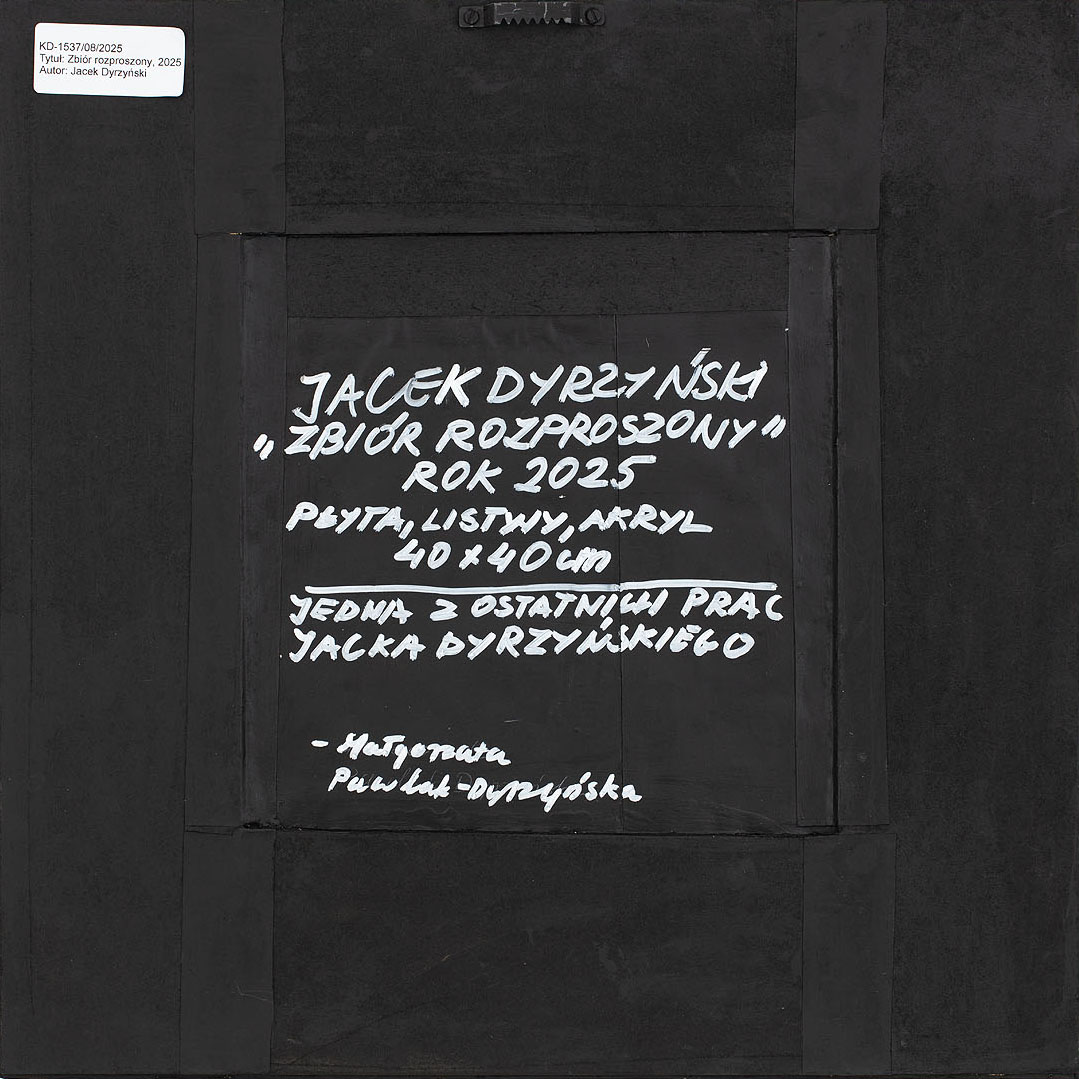 KD-1537/08/2025
Tytuł: Zbiór rozproszony, 2025
Autor: Jacek Dyrzyński
JACEK DYRZYŃSKI
„ZBIÓR ROZPROSZONY”
ROK 2025
PŁYTA, LISTWY, AKRYL
40 x 40 cm
JEDNA Z OSTATNICH PRAC
JACKA DYRZYŃSKIEGO
- Małgorzata
Pawlak-Dyrzyńska